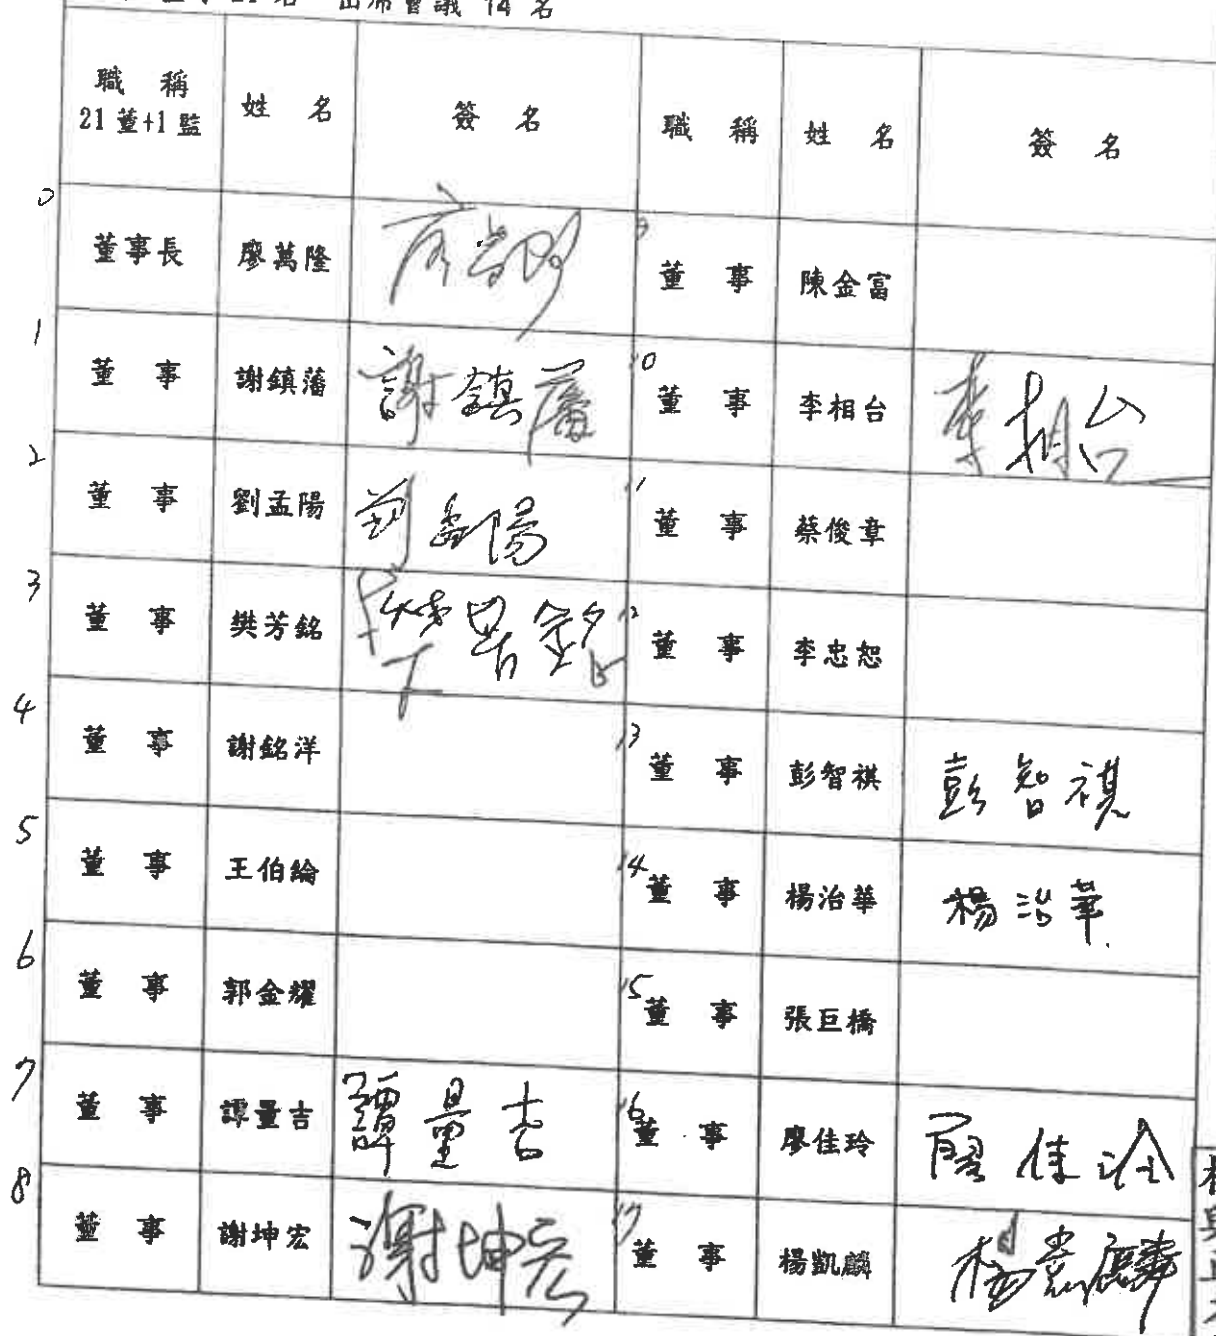 21 名 出席會議 14 名
職 稱 21董+1監 姓 名 簽 名 職 稱 姓 名 簽 名
0 董事長 廖萬隆 9 董 事 陳金富
1 董 事 謝鎮藩 謝鎮藩 10 董 事 李相台 李相台
2 董 事 劉孟陽 劉孟陽 11 董 事 蔡俊章
3 董 事 樊芳銘 樊芳銘 12 董 事 李忠恕
4 董 事 謝銘洋 13 董 事 彭智祺 彭智祺
5 董 事 王伯綸 14 董 事 楊治華 楊治華
6 董 事 郭金耀 15 董 事 張巨橋
7 董 事 譚量吉 譚量吉 16 董 事 廖佳玲 廖佳玲
8 董 事 謝坤宏 謝坤宏 17 董 事 楊凱麟